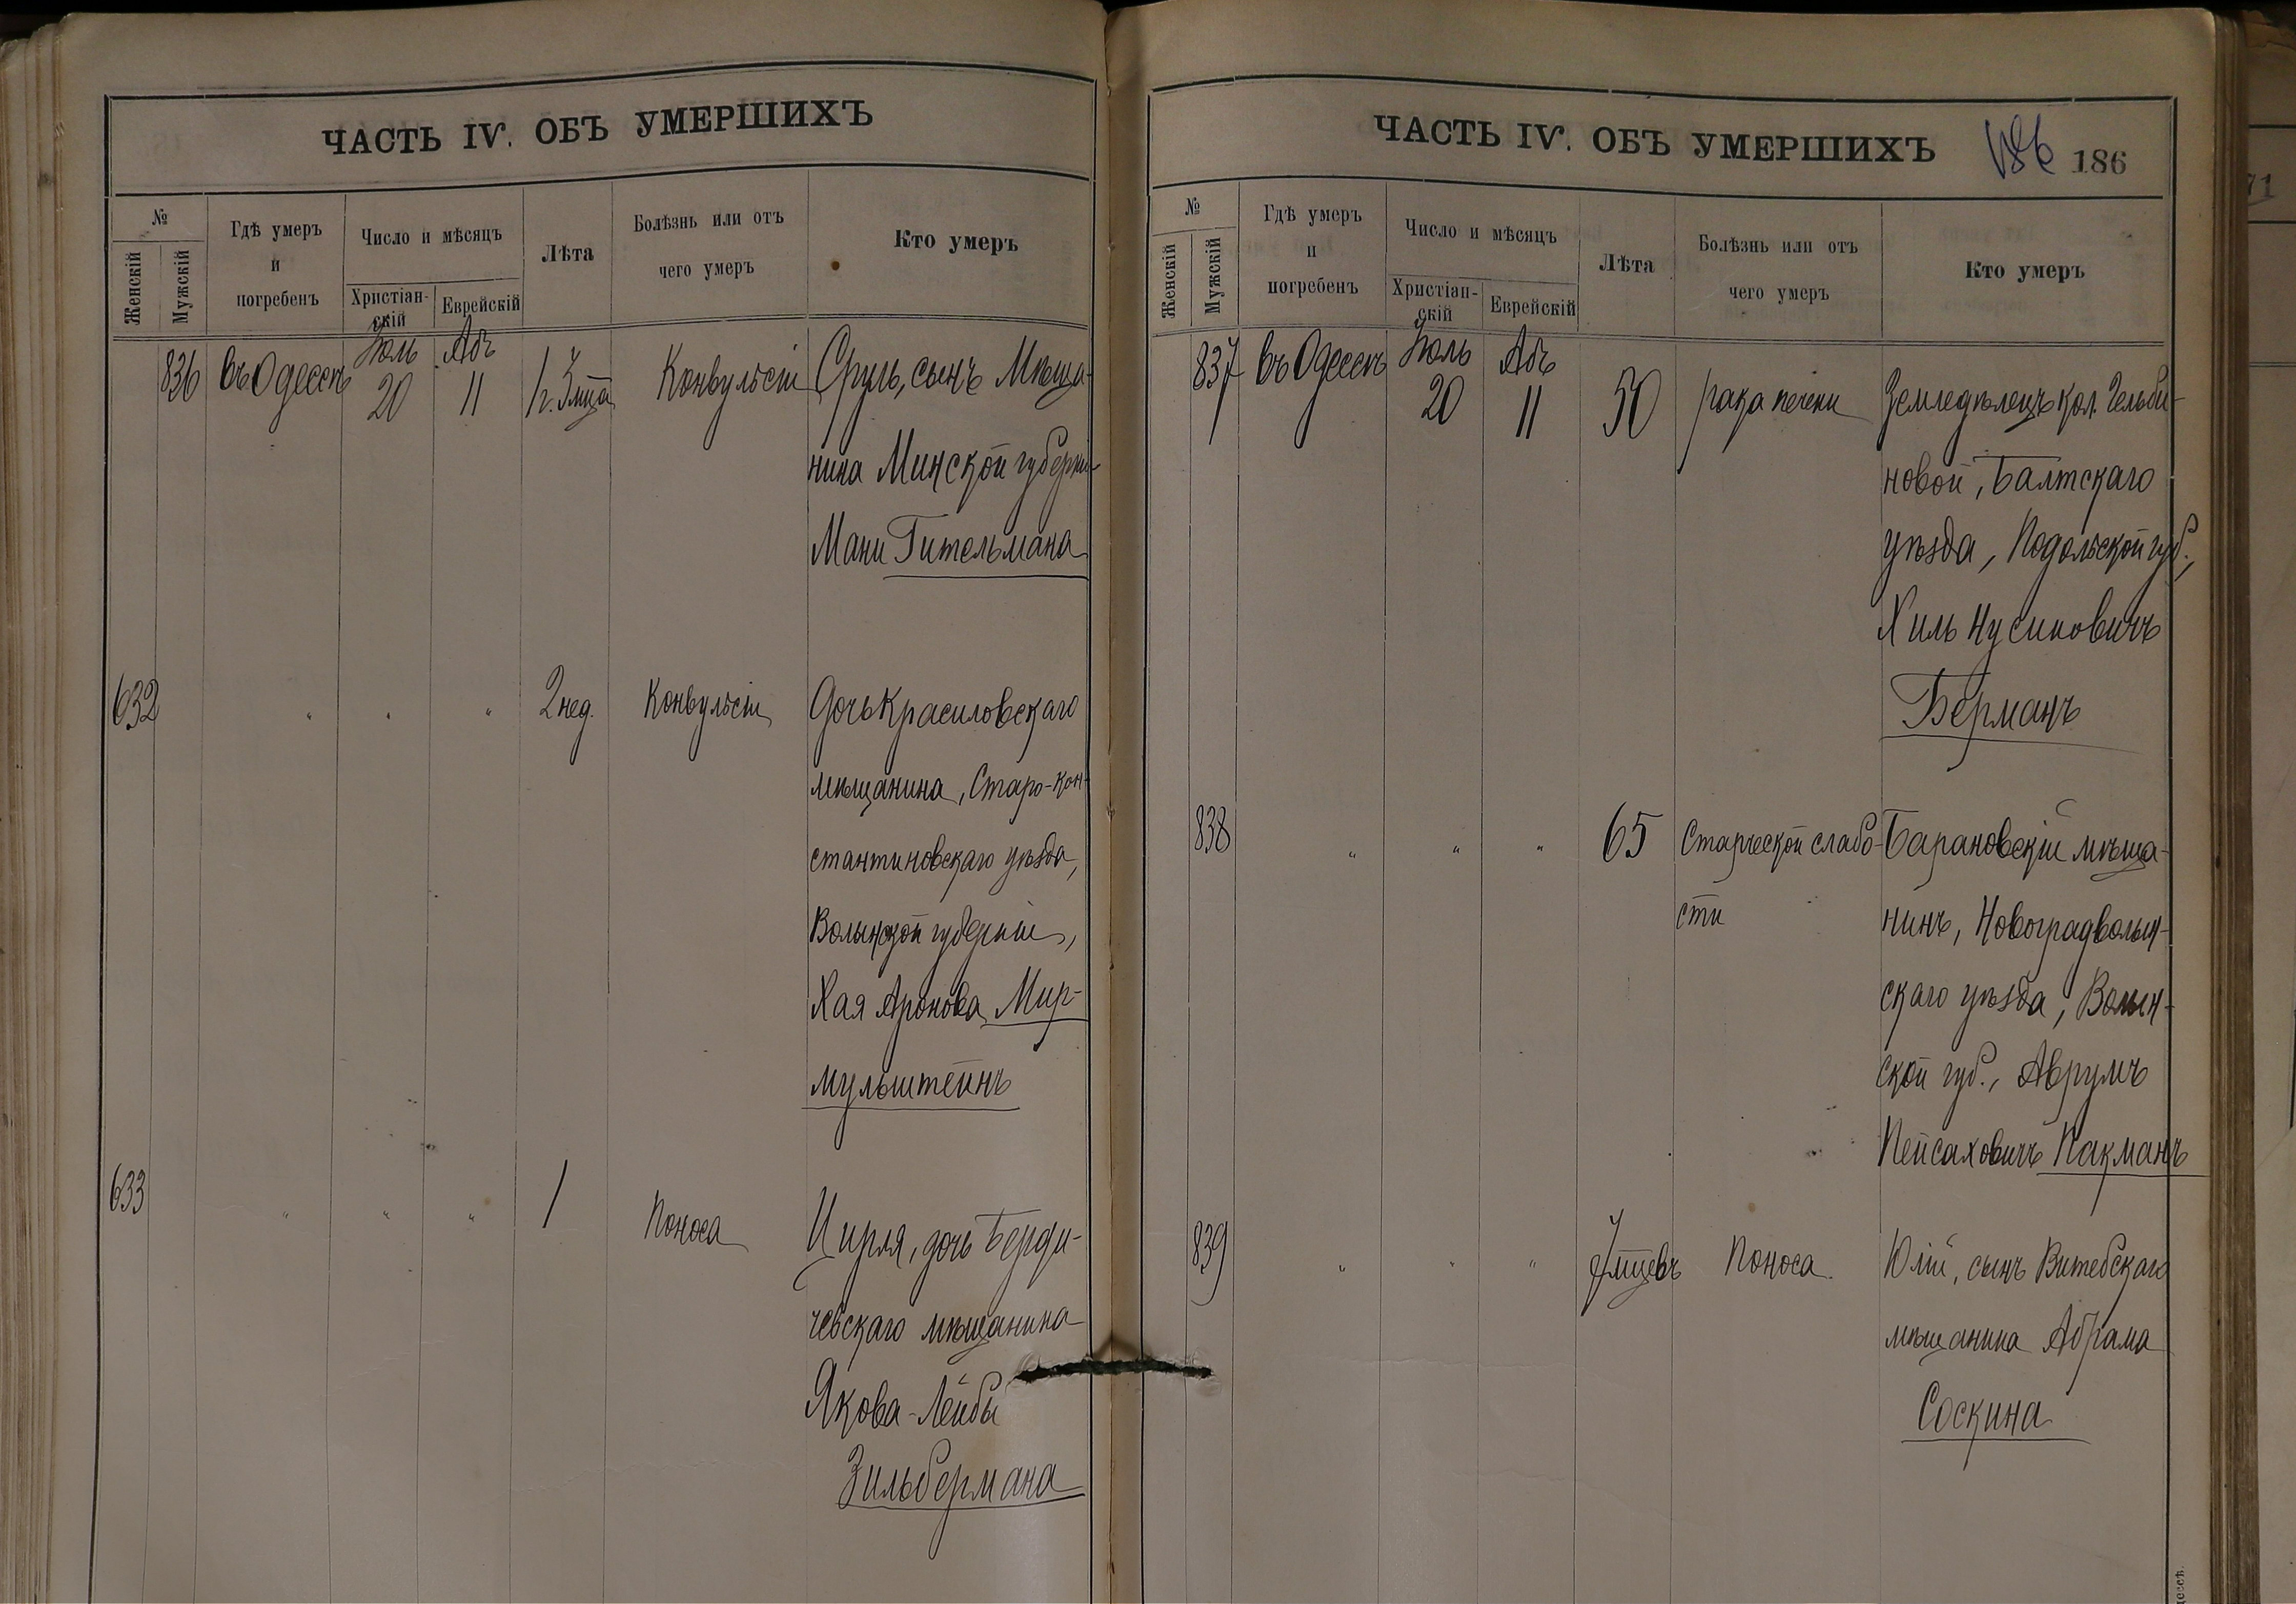 ЧАСТЬ IV. ОБЪ УМЕРШИХЪ
№
Женскій
Мужскій
Гдѣ умеръ
и
погребенъ
Число и мѣсяцъ
Христіан-
скій
Еврейскій
Лѣта
Болѣзнь или отъ
чего умеръ
Кто умеръ
836 въ Одессѣ Іюль 20 Абъ 11 1 г. 3 мѣца Конвульсіи Сруль, сынъ Мѣща-
нина Минской губерніи
Мани Гительмана
632 " " " 2 нед. Конвульсіи Дочь Красиловскаго
мѣщанина, Старо-кон-
стантиновскаго уѣзда,
Волынской губерніи,
Хая Аронова Мир-
мульштейнъ
633 " " " 1 Поноса Цирля, дочь Берди-
чевскаго мѣщанина
Якова-Лейбы
Зильбермана
ЧАСТЬ IV. ОБЪ УМЕРШИХЪ 186 186
№
Женскій
Мужскій
Гдѣ умеръ
и
погребенъ
Число и мѣсяцъ
Христіан-
скій
Еврейскій
Лѣта
Болѣзнь или отъ
чего умеръ
Кто умеръ
837 въ Одессѣ Іюль 20 Абъ 11 50 рака печени Земледѣлецъ кол. Гельби-
новой, Балтскаго
уѣзда, Подольской губ.,
Хиль Нусиновичъ
Берманъ
838 " " " 65 Старческой слабо- Барановскій мѣща-
сти нинъ, Новоградволын-
скаго уѣзда, Волын-
ской губ., Аврумъ
Пейсаховичъ Пакманъ
839 " " " 7 мцевъ Поноса. Юлій, сынъ Витебскаго
мѣщанина Абрама
Соскина
71